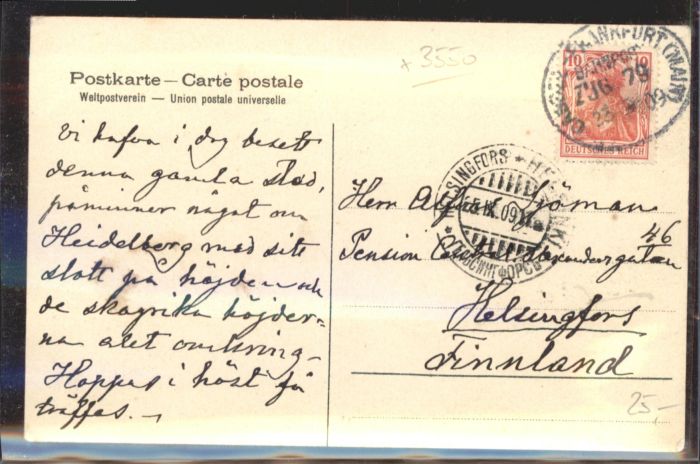 × 3550
Postkarte — Carte postale
Weltpostverein — Union postale universelle
Vi hafva i dag besett
denna gamla stad,
påminner något om
Heidelberg med sitt
slott på höjden och
de skogrika höjder=
na allt omkring —
Hoppas i höst få
träffas. —
FRANKFURT (MAIN)
BAHNPOST
ZUG 79
09
10 10
DEUTSCHES REICH
HELSINGFORS
IX.09
ГЕЛЬСИНГФОРСЪ
Herr Alfred Sjöman
46
Pension Alexandersgatan
Helsingfors
Finnland
25,-